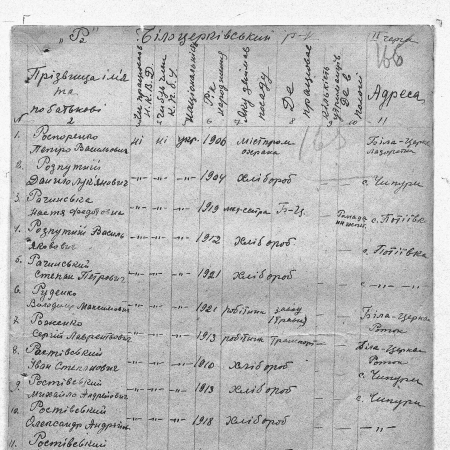 „Рs" Білоцерківський р-н II черга
166
№
Прізвища ім'я та по батькові
Чи працював Н.К.В.Д.
Чи був член К.П.б.У.
національність
Рік народження
Яку займав посаду
Де працював
кількість
Де в
Адреса
2 6 7 8 9 10 11
1. Росторенко Петро Васильович ні ні укр. 1906 Містпром охрана Біла-Церква
165
2. Розпутній Данило Лук'янович -"- -"- -"- 1904 Хлібороб — — с. Чипури
3. Рачинська Настя Федорівна -"- -"- -"- 1919 мед-сестра Б-Ц. — с. Потіївка
4. Розпутній Василь Якович -"- -"- -"- 1912 Хлібороб — — с. Потіївка
5. Рачинський Степан Петрович -"- -"- -"- 1921 Хлібороб — — с. -"-
6. Руденко Володимир Максимович -"- -"- -"- 1921 робітник заводу — — Біла-Церква Роток
7. Роженко Сергій Лаврентійович -"- -"- -"- 1913 робітник Транспорт — — Біла-Церква Роток
8. Растівський Іван Степанович -"- -"- -"- 1910 Хлібороб — — с. Чипури
9. Ростівський Михайло Андрійович -"- -"- -"- 1913 Хлібороб — — с. Чипури
10. Ростівський Олександр Андрійов. -"- -"- -"- 1918 Хлібороб — — -"-
11. Ростівський